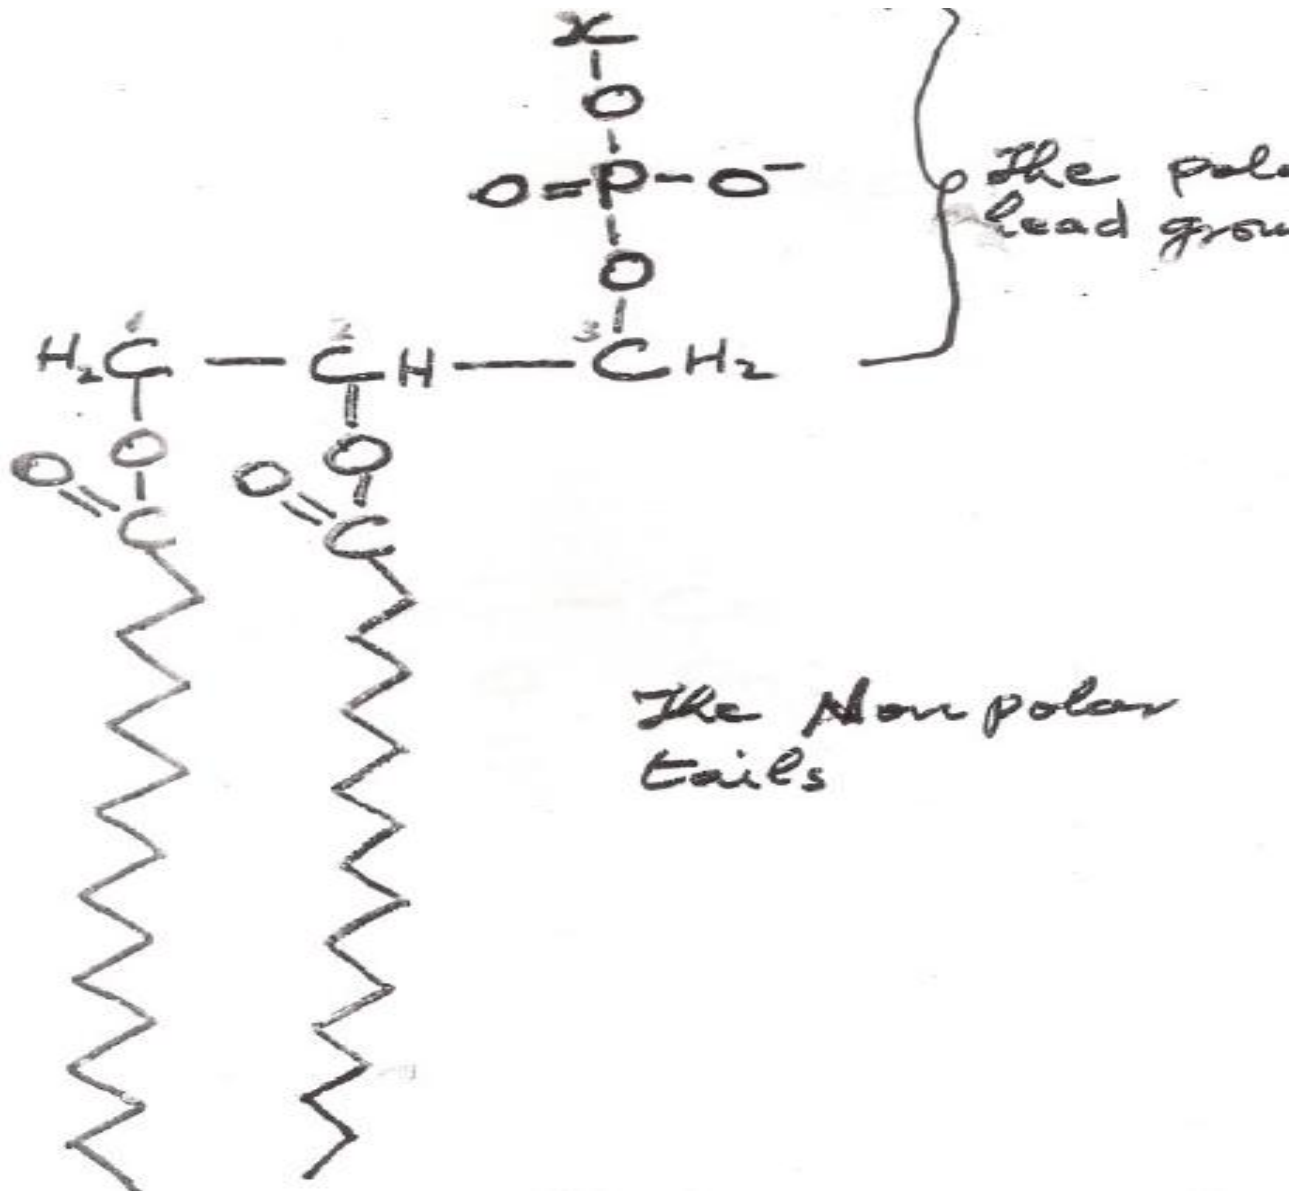 x
O
O=P-O⁻
The
head
O
1 2 3
H₂C — CH — CH₂
O O
O O
C C
The Nonpolar
tails